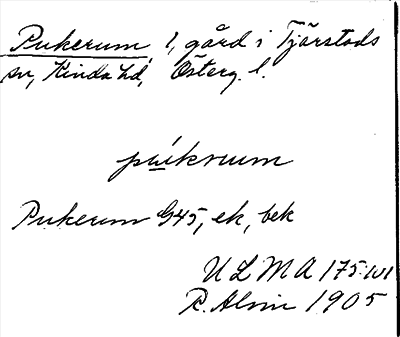 Pukerum, 1, gård i Tjärstads
sn, Kinda hd, Österg. l.
púkrum
Pukerum G45, ek, bek
ULMA 175:101
R. Alvin 1905